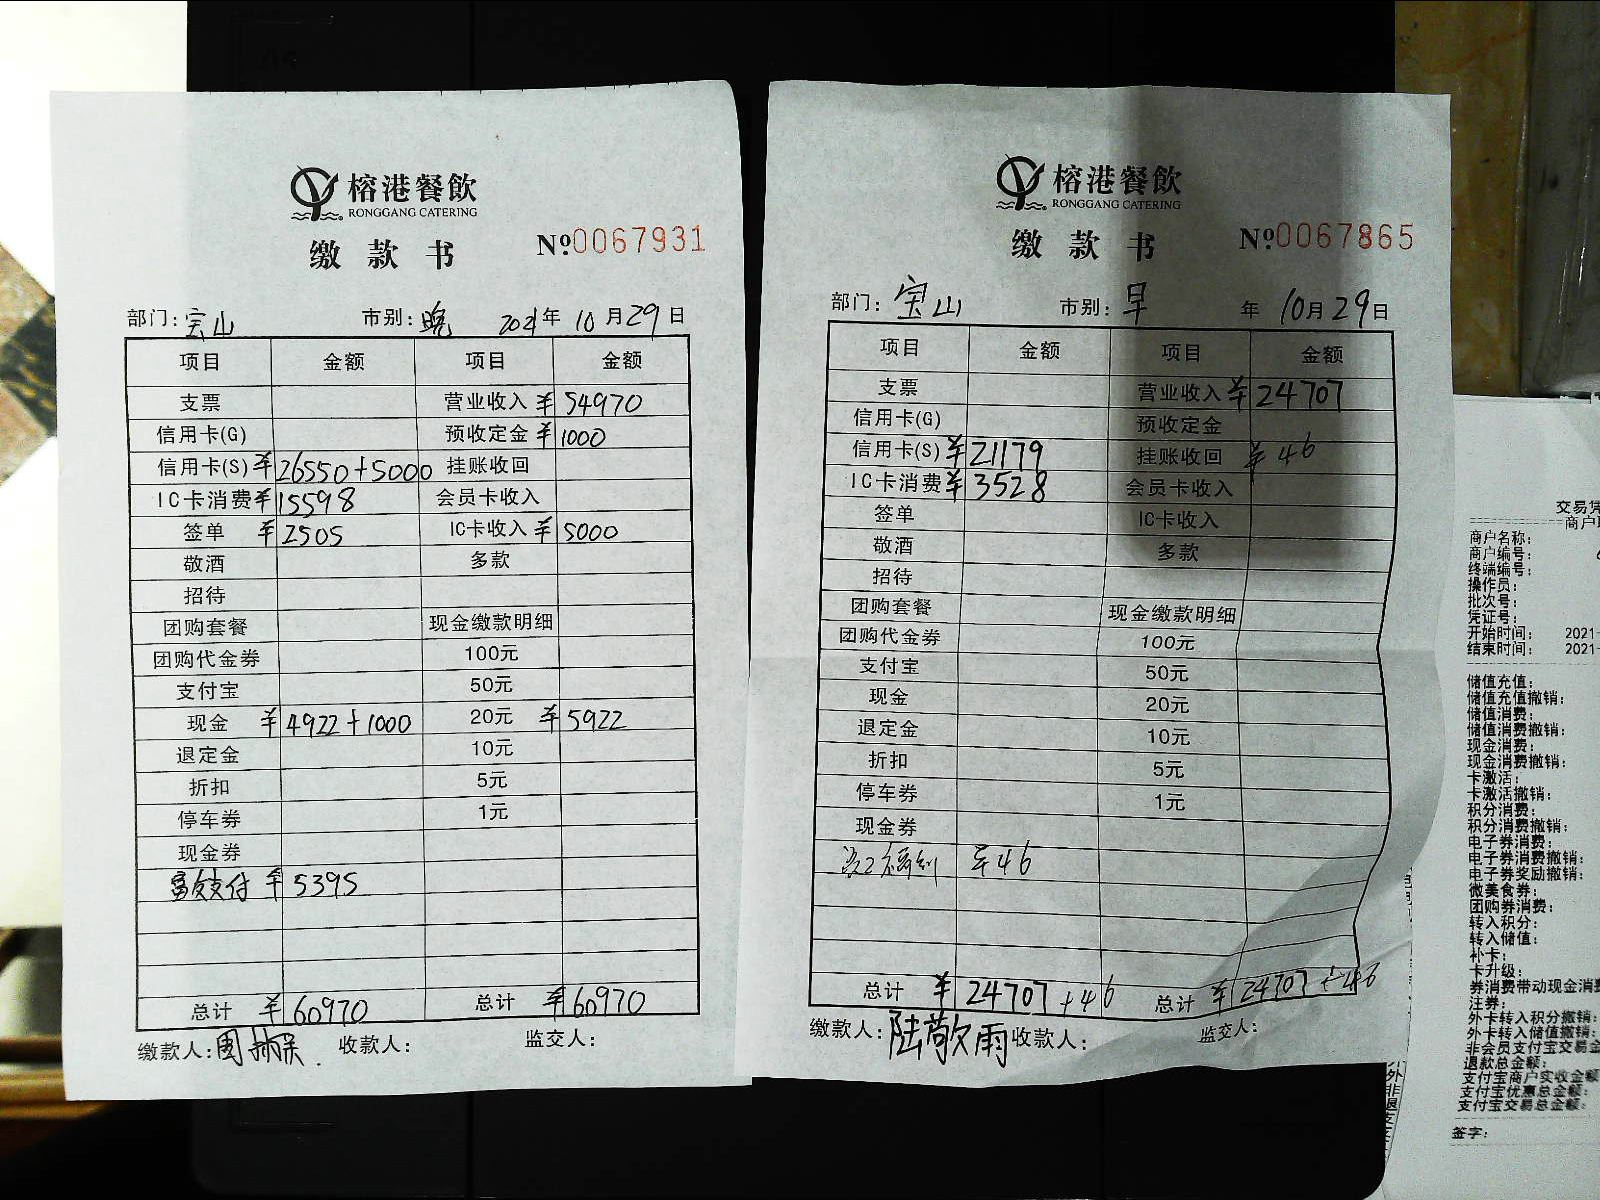 榕港餐飲
RONGGANG CATERING
缴款书 №0067931
部门：宝山 市别：晚 2021年10月29日
项目 金额 项目 金额
支票 营业收入 ¥54970
信用卡(G) 预收定金 ¥1000
信用卡(S) ¥26550+5000 挂账收回
IC卡消费 ¥15598 会员卡收入
签单 ¥2505 IC卡收入 ¥5000
敬酒 多款
招待
团购套餐 现金缴款明细
团购代金券 100元
支付宝 50元
现金 ¥4922+1000 20元 ¥5922
退定金 10元
折扣 5元
停车券 1元
现金券
支付 ¥5395
总计 ¥60970 总计 ¥60970
缴款人： 收款人： 监交人：
榕港餐飲
RONGGANG CATERING
缴款书 №0067865
部门：宝山 市别：早 年10月29日
项目 金额 项目 金额
支票 营业收入 ¥24707
信用卡(G) 预收定金
信用卡(S) ¥21179 挂账收回 ¥46
IC卡消费 ¥3528 会员卡收入
签单 IC卡收入
敬酒 多款
招待
团购套餐 现金缴款明细
团购代金券 100元
支付宝 50元
现金 20元
退定金 10元
折扣 5元
停车券 1元
现金券
¥46
总计 ¥24707+46 总计 ¥24707+46
缴款人：陆敬雨 收款人： 监交人：
交易凭
商户
商户名称：
商户编号：
终端编号：
操作员：
批次号：
凭证号：
开始时间： 2021-
结束时间： 2021-
储值充值：
储值充值撤销：
储值消费：
储值消费撤销：
现金消费：
现金消费撤销：
卡激活：
卡激活撤销：
积分消费：
积分消费撤销：
电子券消费：
电子券消费撤销：
电子券奖励撤销：
微美食券：
团购券消费：
转入积分：
转入储值：
补卡：
卡升级：
券消费带动现金消费
注券：
外卡转入积分撤销：
外卡转入储值撤销：
非会员支付宝交易金
退款总金额：
支付宝商户实收金额
支付宝优惠总金额：
支付宝交易总金额：
签字：